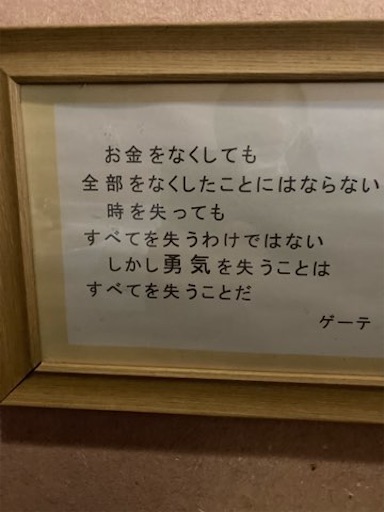 お金をなくしても
全部をなくしたことにはならない
時を失っても
すべてを失うわけではない
しかし勇気を失うことは
すべてを失うことだ
ゲーテ